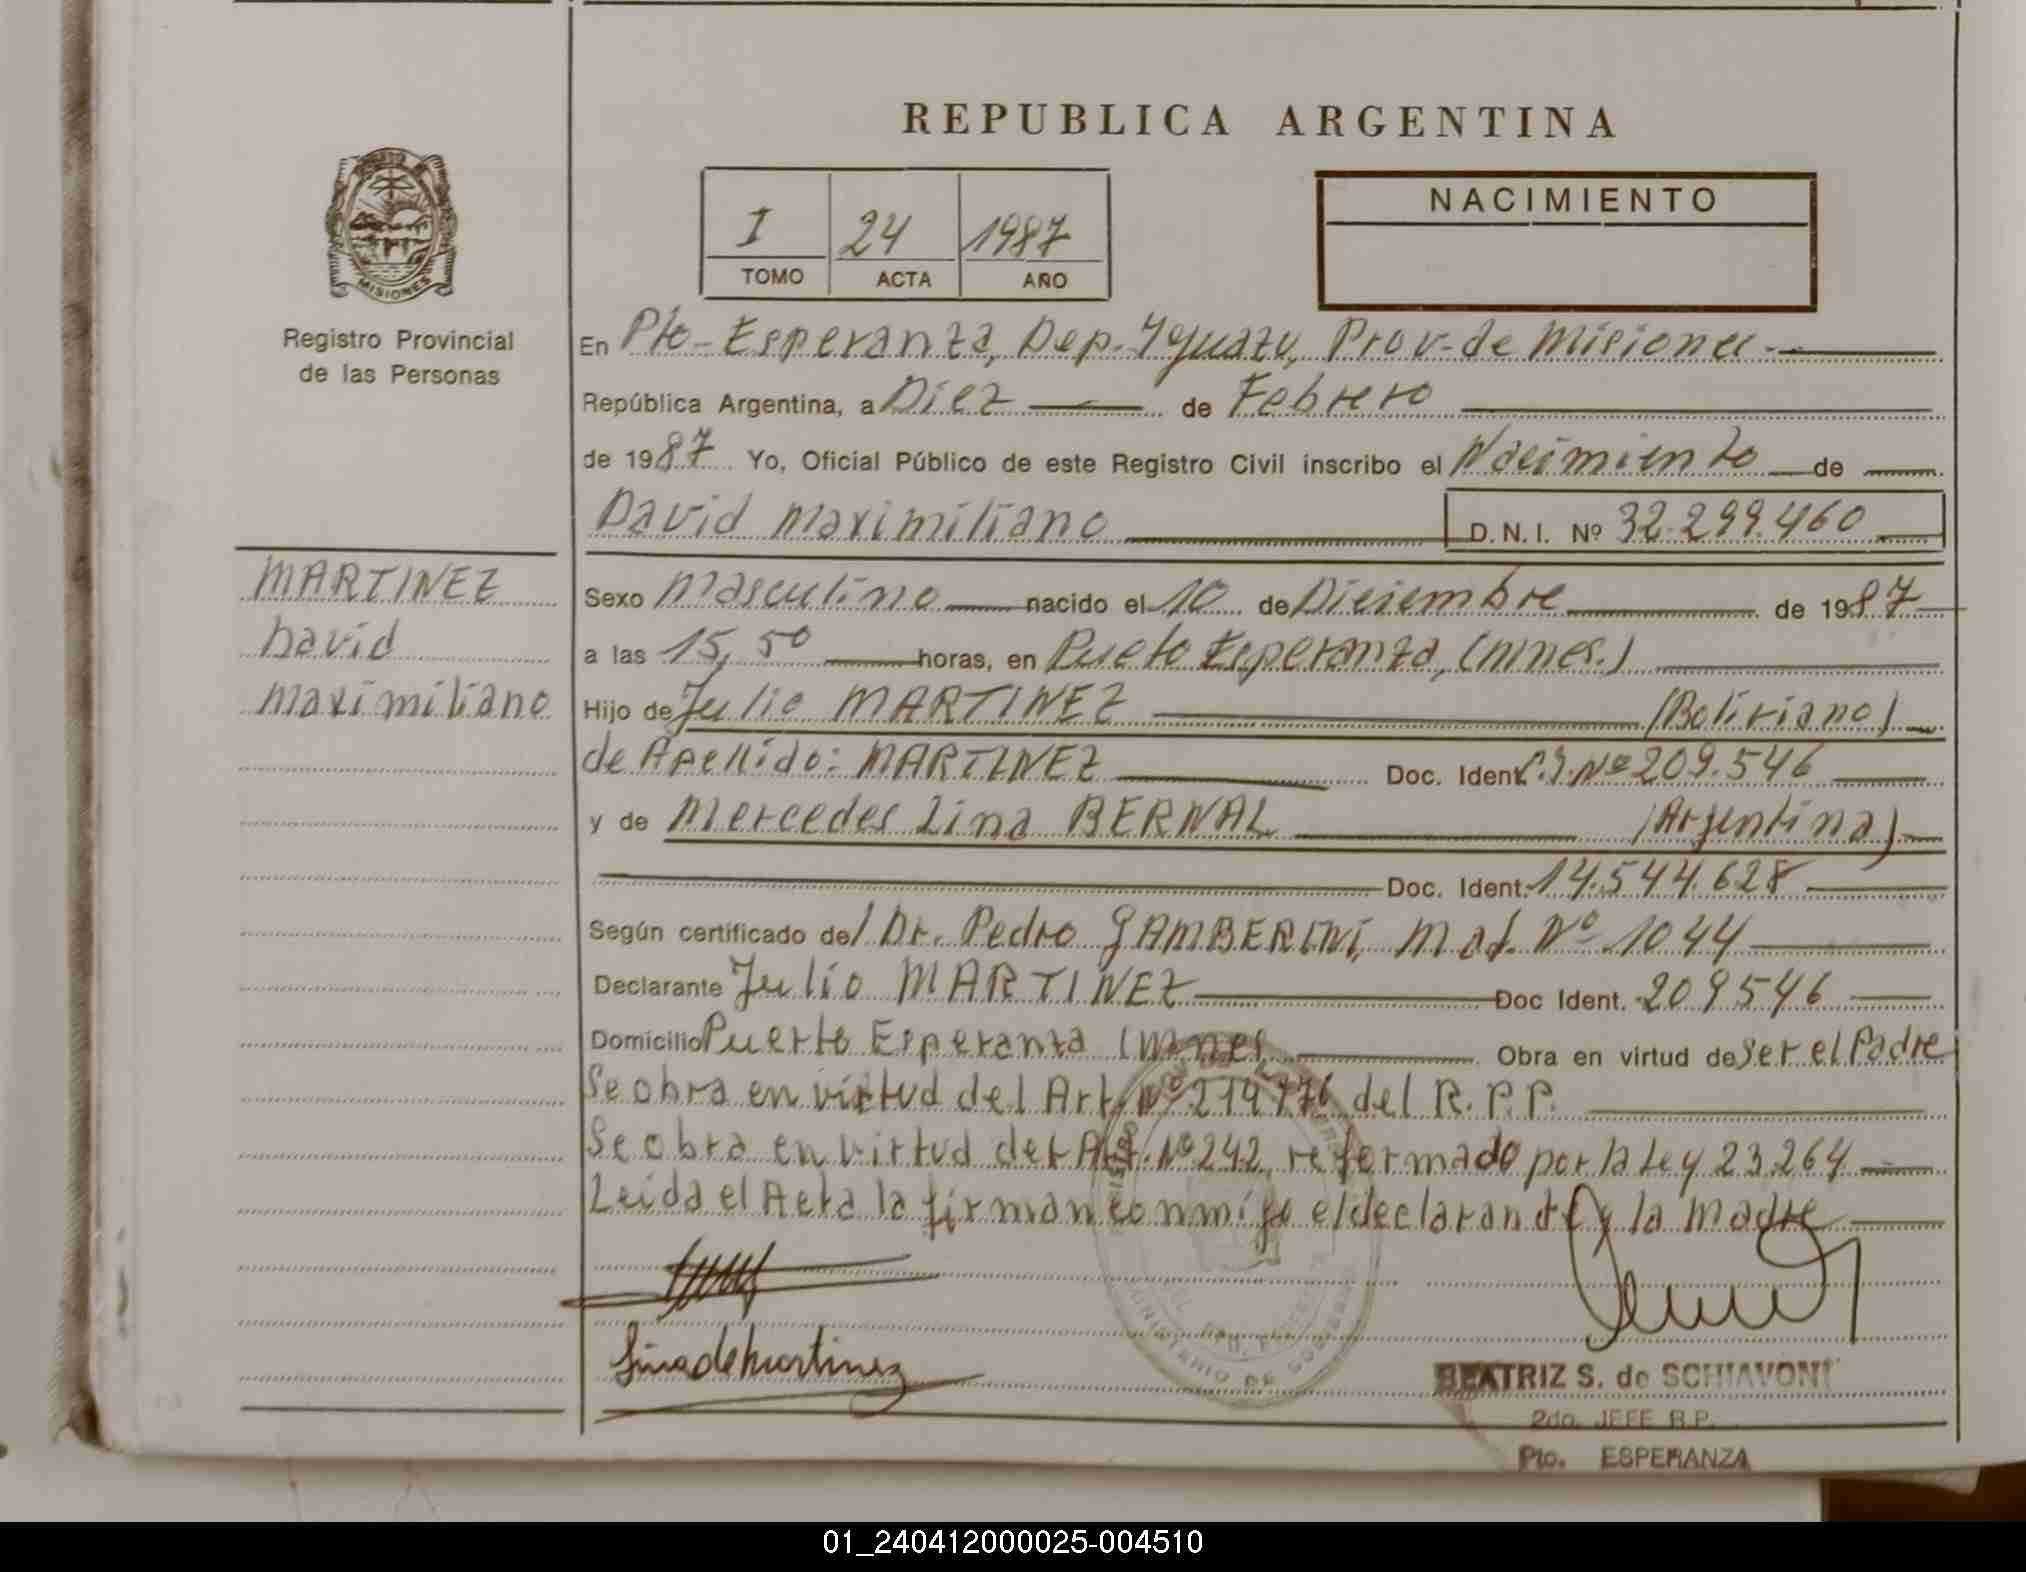 REPUBLICA ARGENTINA
NACIMIENTO
I 24 1987
TOMO ACTA AÑO
MISIONES
Registro Provincial
de las Personas
En Pto-Esperanza, Dep. Yguazu, Prov-de Misiones-
República Argentina, a Diez de Febrero
de 1987 Yo, Oficial Público de este Registro Civil inscribo el Nacimiento de
David Maximiliano D.N.I. Nº 32.299.460
MARTINEZ
David
Maximiliano
Sexo Masculino nacido el 10 de Diciembre de 1987
a las 15,50 horas, en Pueto Esperanza, (mnes.)
Hijo de Julio MARTINEZ (Boliviano)
de Apellido: MARTINEZ Doc. Ident. C.I. Nº 209.546
y de Mercedes Lina BERNAL (Argentina)
Doc. Ident. 14.544.628
Según certificado del Dr. Pedro GAMBERINI, Mat. Nº 1044
Declarante Julio MARTINEZ Doc Ident. 209546
Domicilio Puerto Esperanza (mnes. Obra en virtud de ser el Padre
Se obra en virtud del Art. Nº del R.P.P.
Se obra en virtud del Art. Nº 242, reformado por la Ley 23.264
Leida el Acta la firman conmigo el declarante y la Madre
Lina de Martinez
MINISTERIO DE GOBIERNO
BEATRIZ S. de SCHIAVONI
2do. JEFE R.P.
Pto. ESPERANZA
01_240412000025-004510